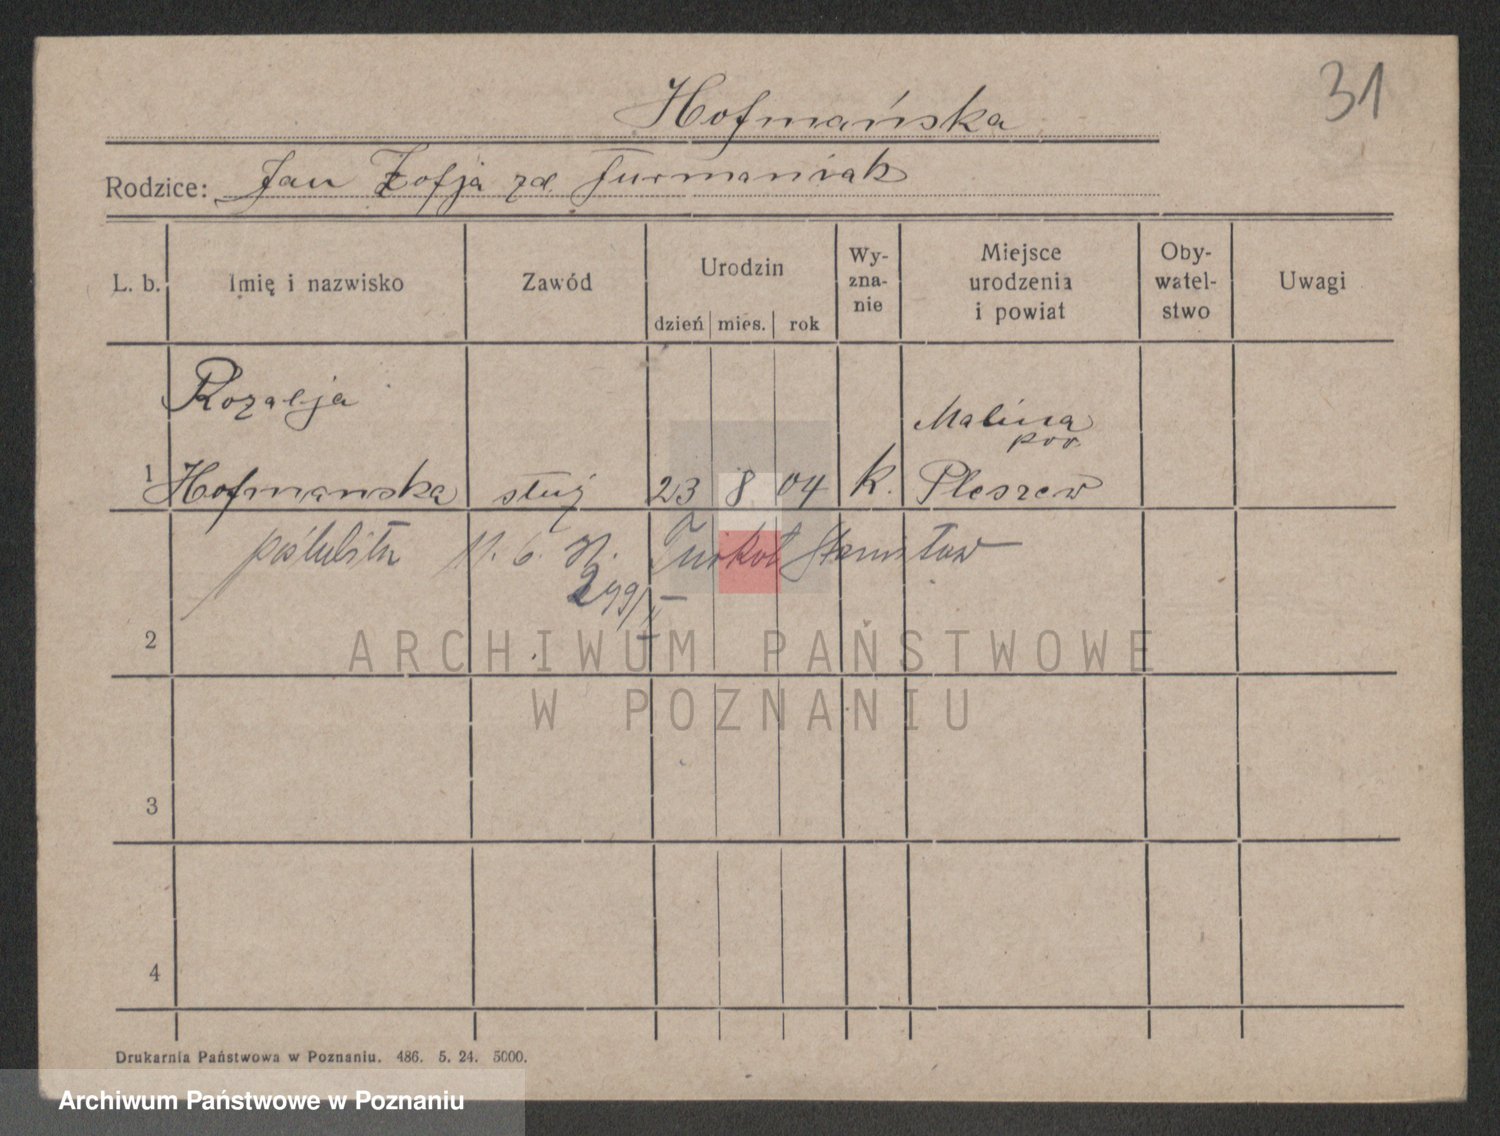 31
Hofmańska
Rodzice: Jan Zofja zd. Furmaniak
L. b. Imię i nazwisko Zawód Urodzin dzień mies. rok Wy-zna-nie Miejsce urodzenia i powiat Oby-watel-stwo Uwagi
Rozalja
Malina
pow.
1 Hofmanska służ 23 8 04 k. Pleszew
poślubiła 11. 6. Turkot Stanisław
299/II
2
ARCHIWUM PAŃSTWOWE
W POZNANIU
3
4
Drukarnia Państwowa w Poznaniu. 486. 5. 24. 5000.
Archiwum Państwowe w Poznaniu